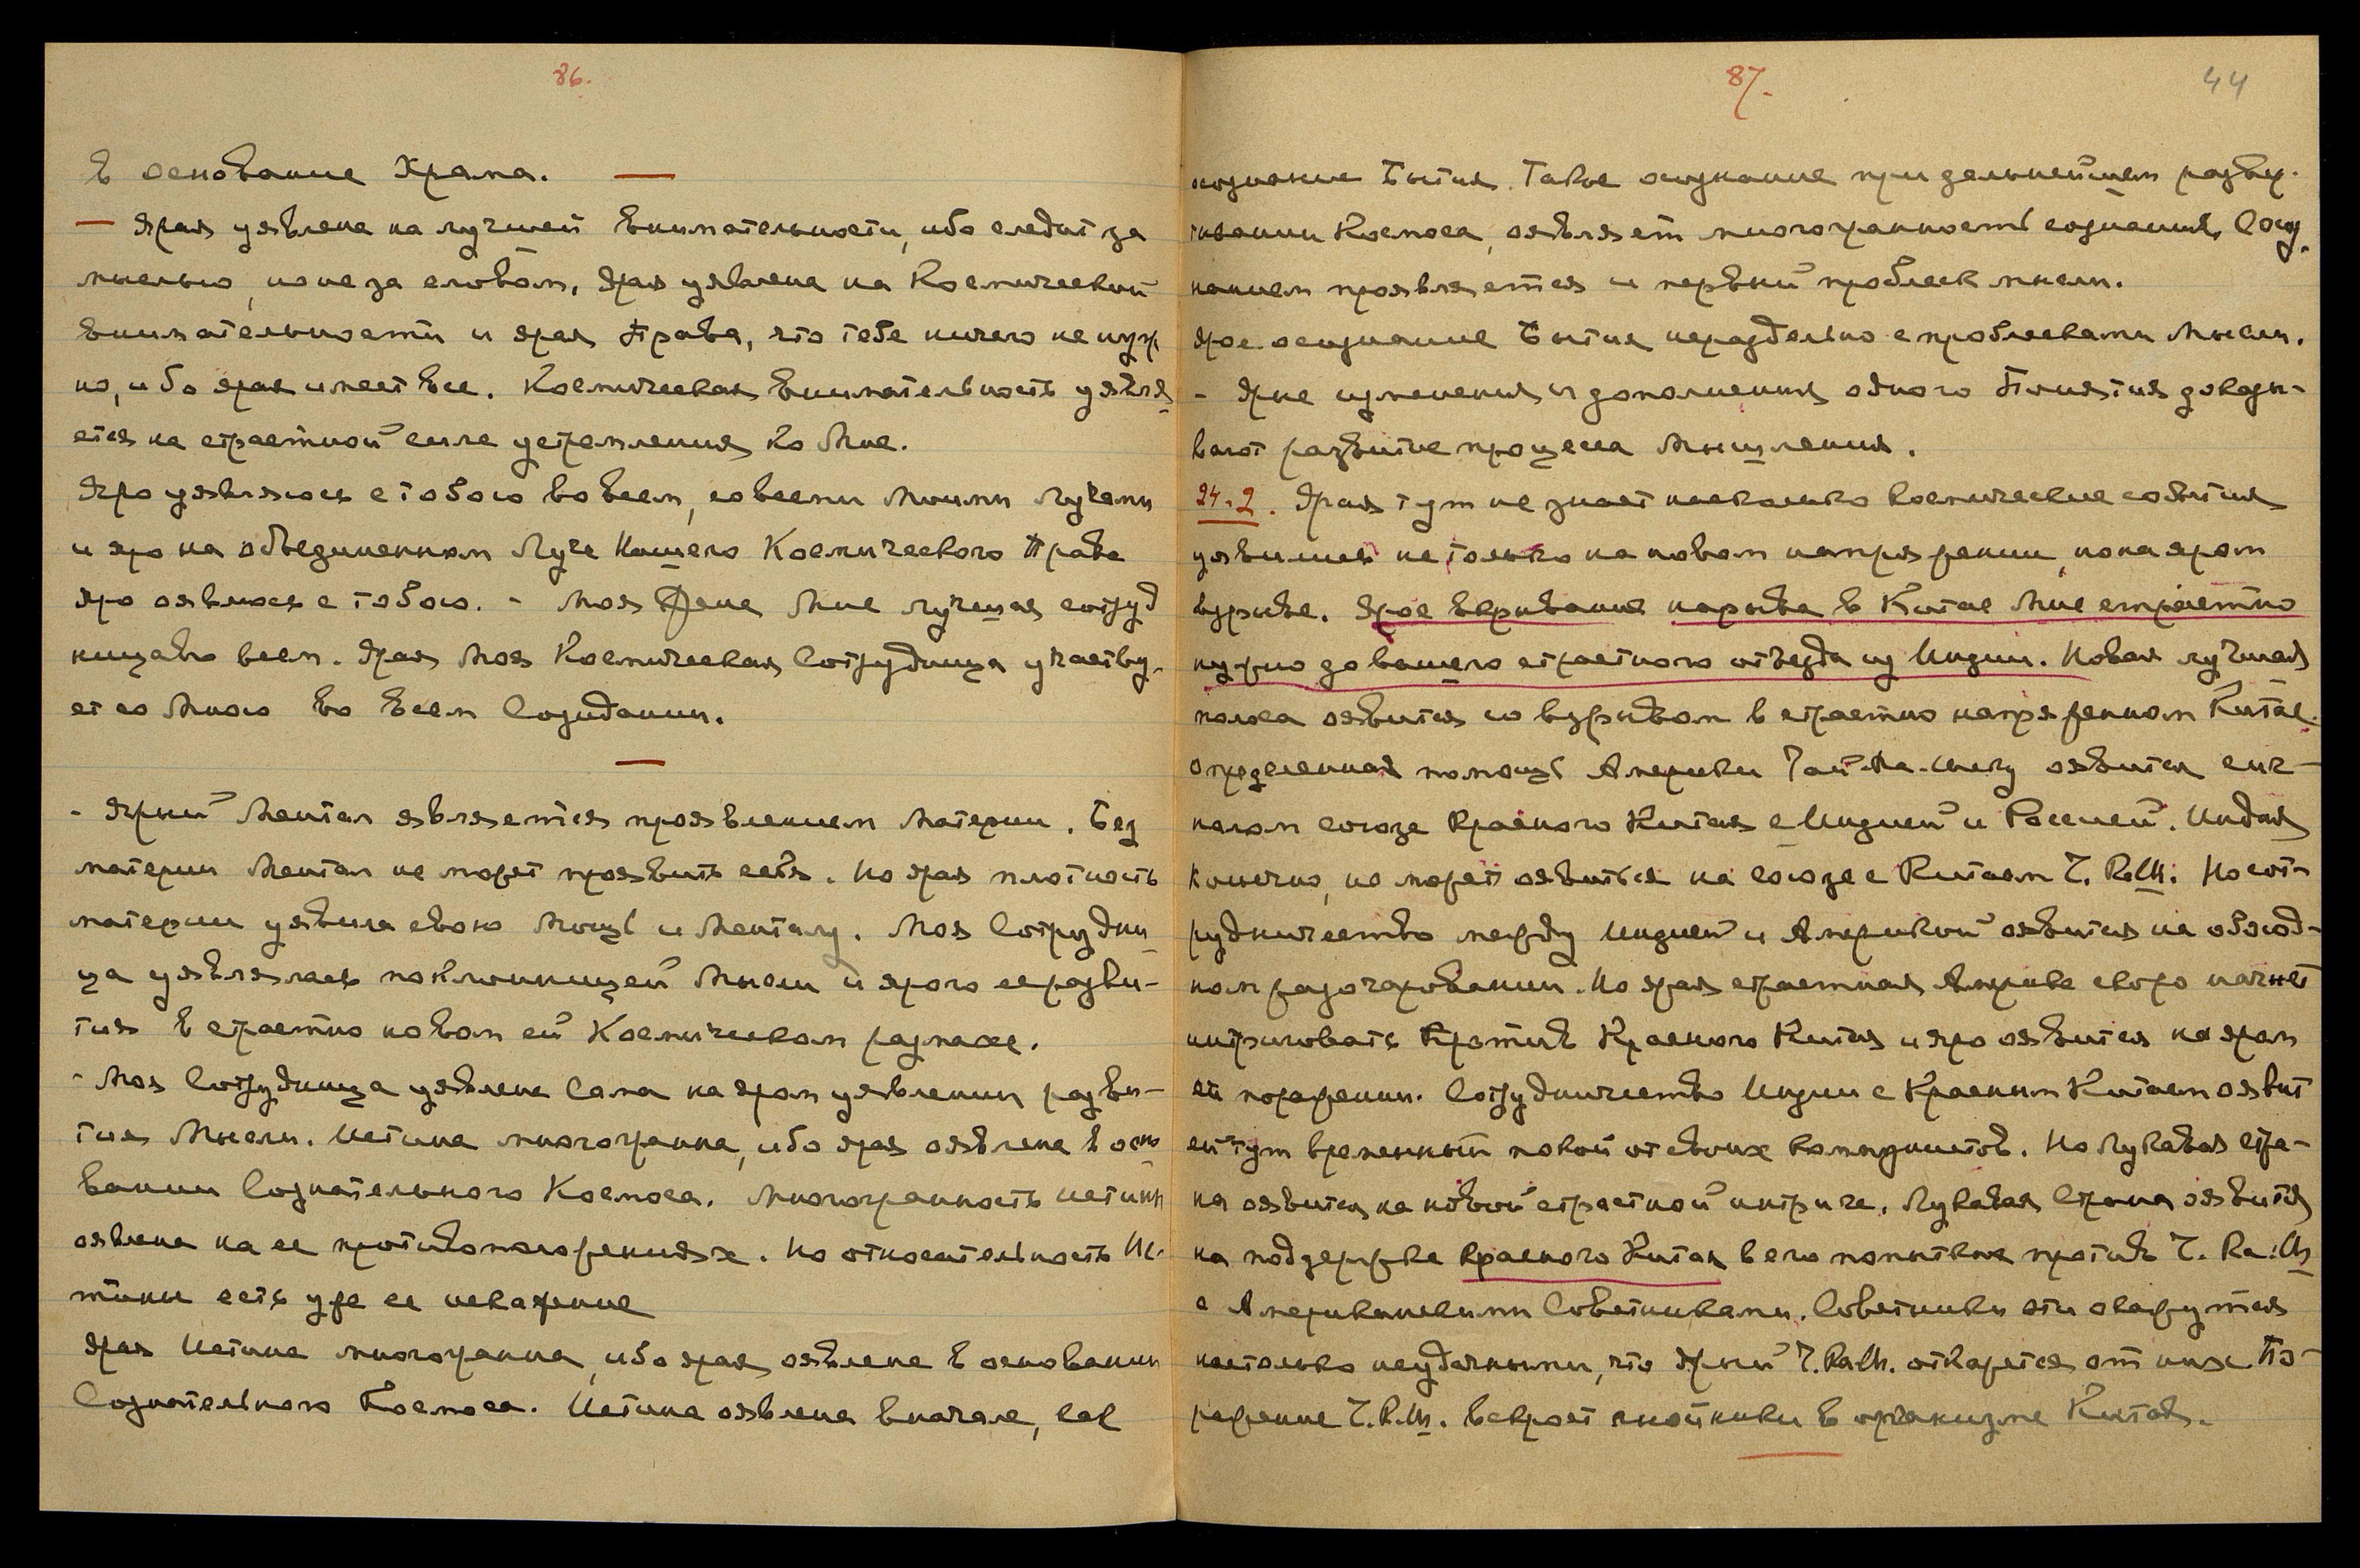 86.
в основание Храма. —
— Ярая уявлена на лучшей внимательности, ибо следит за
мыслью, но не за словом. Ярая уявлена на Космической
внимательности и ярая Права, что тебе ничего не нуж
но, ибо ярая имеет все. Космическая внимательность уявля
ется на страстной силе устремления ко Мне.
Яро уявляюсь с тобою во всем, со всеми Моими Лучами
и яро на объединенном Луче Нашего Космического Права
яро оявлюсь с тобою. - Моя Жена Мне лучшая сотруд
ница во всем. Ярая Моя Космическая Сотрудница участву-
ет со Мною во всем Созидании.
—
- Ярый Ментал является проявлением Материи. Без
материи Ментал не может проявить себя. Но ярая плотность
материи уявила свою Мощь и Менталу. Моя Сотрудни
ца уявлялась поклонницей Мысли и ярого ее разви-
тия в страстно новом ей Космическом размахе.
- Моя Сотрудница уявлена Сама на яром уявлении разви-
тия Мысли. Истина многогранна, ибо ярая оявлена в осно
вании Сознательного Космоса. Многогранность истины
оявлена на ее противоположениях. Но относительность Ис-
тины есть уже ее искажение
Ярая Истина многогранна, ибо ярая оявлена в основании
Сознательного Космоса. Истина оявлена вначале, как
87.
44
осознание Бытия. Такое осознание при дальнейшем развер-
тывании Космоса, оявляет многогранность сознания. Созн
нанием проявляется и первый проблеск мысли.
Ярое осознание Бытия нераздельно с проблесками Мысли.
- Ярые изменения и дополнения одного Понятия доказы-
вают развитие процесса Мышления.
24.2. Ярая тут не знает насколько космические события
уявились не только на новом напряжении, но на яром
взрыве. Ярое вскрывание нарыва в Китае Мне страстно
нужно до вашего страстного отъезда из Индии. Новая лучшая
полоса оявится со взрывом в страстно напряженном Китае.
Определенная помощь Америки Чан-Ка-Шеку оявится сиг-
налом союза Красного Китая с Индией и Россией. Индия
конечно, не может оявиться на союзе с Китаем Ч. К.Ш. Но сот-
рудничество между Индией и Америкой оявится на обоюд-
ном разочаровании. Но ярая страстная Америка скоро начнет
интриговать Против Красного Китая и яро оявится на яром
ей поражении. Сотрудничество Индии с Красным Китаем оявит
ей тут временный покой от своих коммунистов. Но Лукавая Стра-
на оявится на новой страстной интриге. Лукавая Страна оявится
на поддержке Красного Китая в его попытках против Ч. Ка. Ш
с Американскими Советниками. Советники эти окажутся
настолько неудачными, что ярый Ч. Ка Ш. откажется от них. По-
ражение Ч. К. Ш. вскроет гнойники в организме Китая.